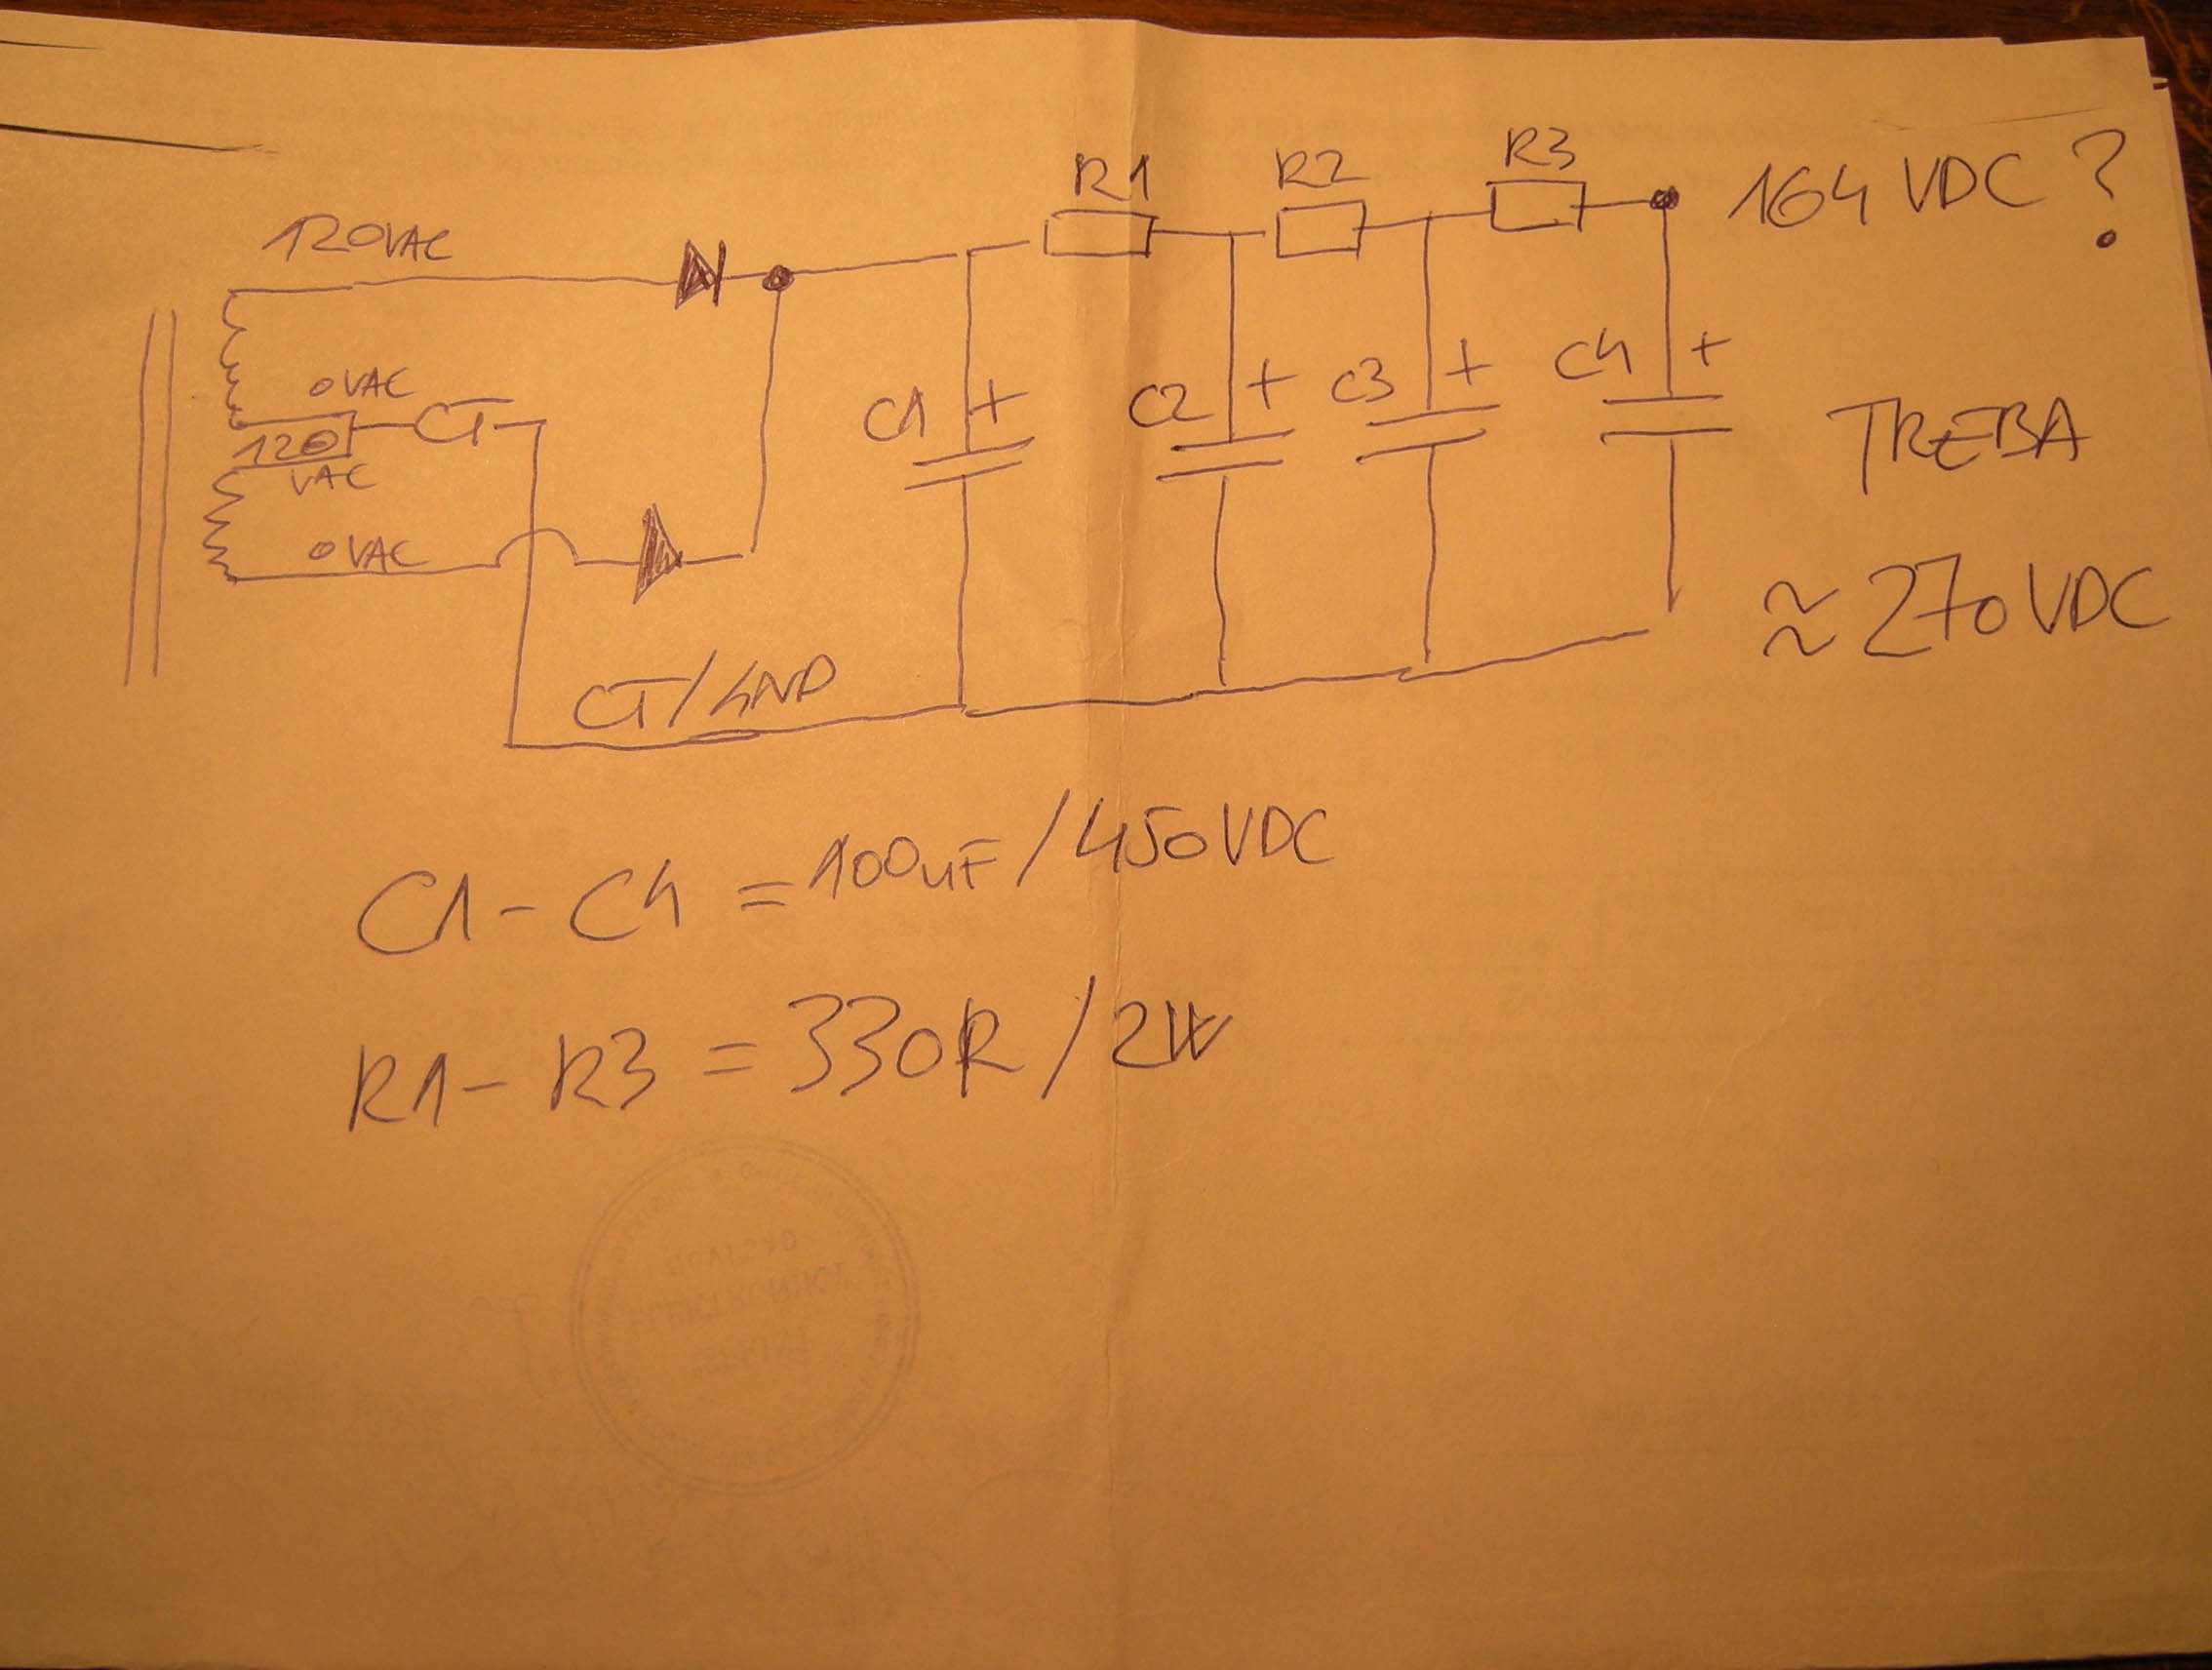 R1 R2 R3
120VAC
164 VDC ?
0VAC
CT
120
VAC
C1 + C2 + C3 + C4 +
TREBA
0VAC
≈ 270VDC
CT/GND
C1 - C4 = 100uF / 450VDC
R1 - R3 = 330R / 2W